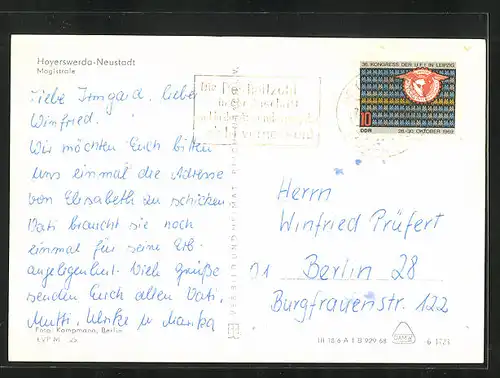 Hoyerswerda-Neustadt
Magistrale
Liebe Irmgard, lieber
Winfried.
Wir möchten Euch bitten
uns einmal die Adresse
von Elisabeth zu schicken
Vati braucht sie noch
einmal für seine Erb-
angelegenheit. Viele Grüße
senden Euch allen Vati,
Mutti, Ulrike u Marika
Foto: Kampmann, Berlin
36. KONGRESS DER U.F.I. IN LEIPZIG
10
DDR
28.-30. OKTOBER 1969
Herrn
Winfried Prüfert
Berlin 28
Burgfrauenstr. 122
III 18 6 A 1 B 929 68